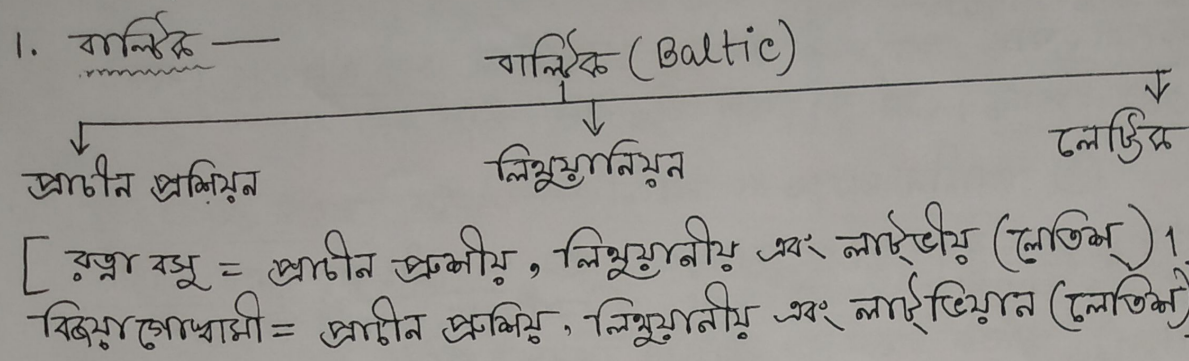 1. বাল্টিক —
বাল্টিক (Baltic)
প্রাচীন প্রশিয়ন লিথুয়ানিয়ন লেট্টিক
[ রত্না বসু = প্রাচীন প্রুশীয়, লিথুয়ানীয় এবং লাট্ভীয় (লেতিশ্)।
বিজয়া গোস্বামী = প্রাচীন প্রুশিয়, লিথুয়ানীয় এবং লাট্ভিয়ান (লেতিশ)